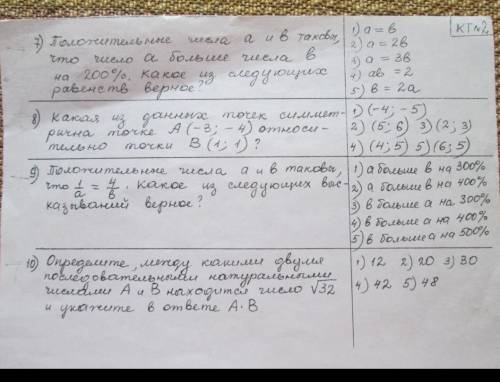 КТ №2
7) Положительные числа a и в таковы,
что число a больше числа в
на 200%. Какое из следующих
равенств верное?
1) a = в
2) a = 2в
3) a = 3в
4) aв = 2
5) в = 2a
8) Какая из данных точек симмет-
рична точке A (-3; -4) относи-
тельно точки B (1; 1)?
1) (-4; -5)
2) (5; 6) 3) (2; 3)
4) (4; 5) 5) (6; 5)
9) Положительные числа a и в таковы,
что 1/a = 4/в. Какое из следующих выс-
казываний верное?
1) a больше в на 300%
2) a больше в на 400%
3) в больше a на 300%
4) в больше a на 400%
5) в больше a на 500%
10) Определите, между какими двумя
последовательными натуральными
числами A и B находится число √32
и укажите в ответе A·B
1) 12 2) 20 3) 30
4) 42 5) 48